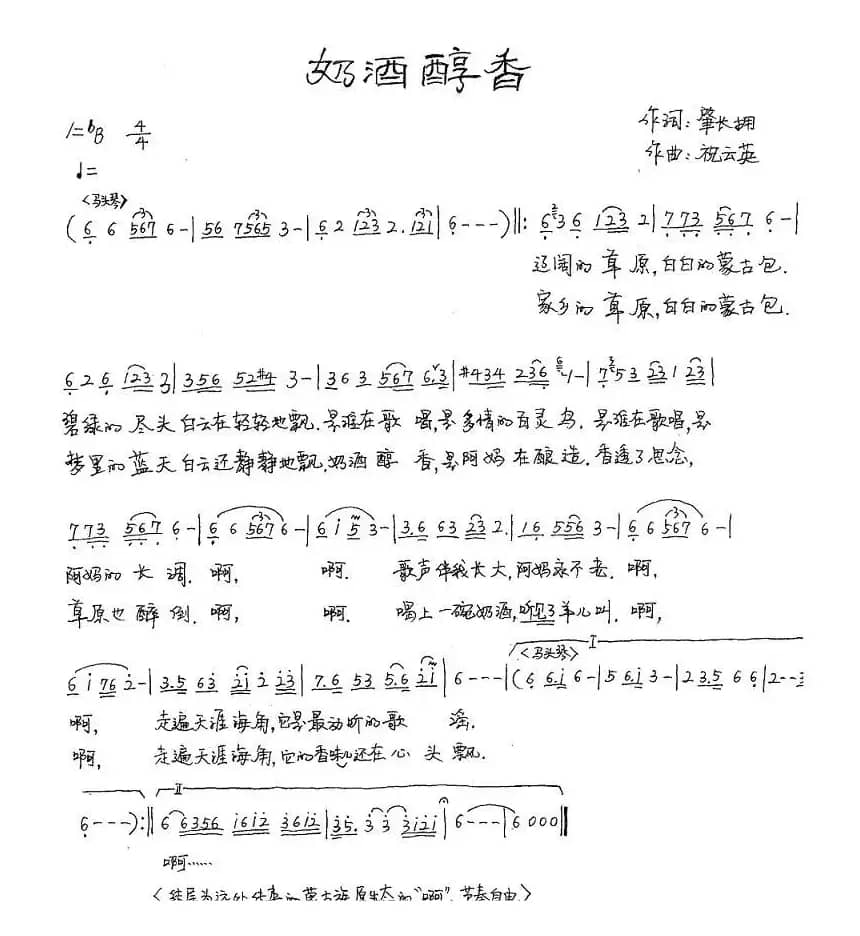 奶酒醇香
1=bB 4/4
作词：肇长拥
♩=
作曲：祝云英
〈马头琴〉
(6 6 567 6-|56 7565 3-|6 2 123 2. 121|6---)‖: 6 3 6 123 2|773 567 6-|
辽阔的 草 原,白白的蒙古包.
家乡的 草 原,白白的蒙古包.
6 2 6 123 3|356 52#4 3-|3 6 3 567 6.3|#434 236 1-|7 53 231 23|
碧绿的 尽头 白云在轻轻地飘.是谁在歌 唱,是多情的百灵鸟. 是谁在歌唱,是
梦里的 蓝天 白云还静静地飘.奶酒醇 香,是阿妈在酿造.香透了思念,
773 567 6-|6 6 567 6-|6 i 5 3-|3.6 63 23 2.|16 556 3-|6 6 567 6-|
阿妈的 长 调. 啊, 啊. 歌声伴我长大,阿妈永不老. 啊,
草原也 醉 倒. 啊, 啊. 喝上一碗奶酒,听见了羊儿叫. 啊,
I
〈马头琴〉
6 i 76 2-|3.5 63 21 2 23|7.6 53 5.6 2i|6---|(6 6.i 6-|5 6.i 3-|2 3.5 6 6|2--3
啊, 走遍天涯海角,它是最动听的歌 谣.
啊, 走遍天涯海角,它的香味还在心 头 飘.
II
6---):‖6 6356 i6i2 36i2|35. 3 3 3i2i|6---|6000‖
啊……
〈结尾为远处传来的蒙古族原生态的“啊”.节奏自由〉